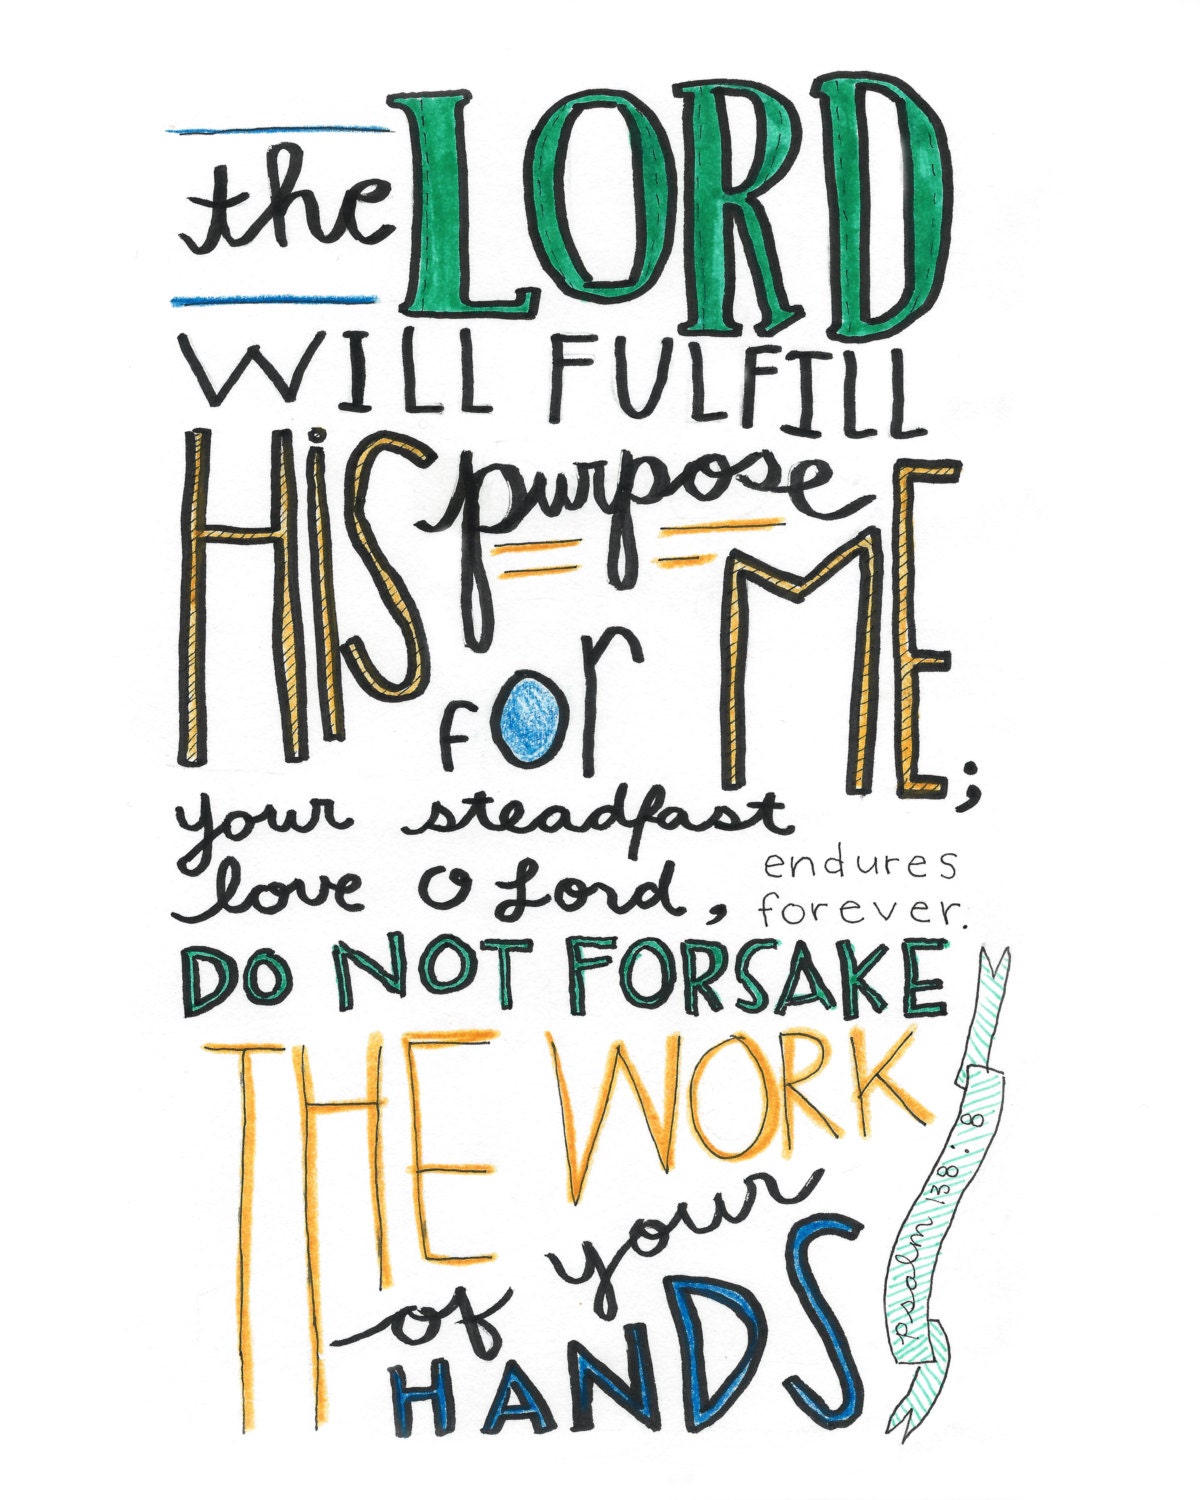 the LORD
WILL FULFILL
HiS purpose
for ME;
your steadfast
love O Lord, endures
forever.
DO NOT FORSAKE
THE WORK
of your
HANDS
psalm 138:8